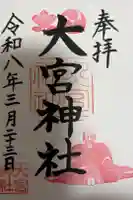 奉拝
大宮神社
令和八年三月二十三日